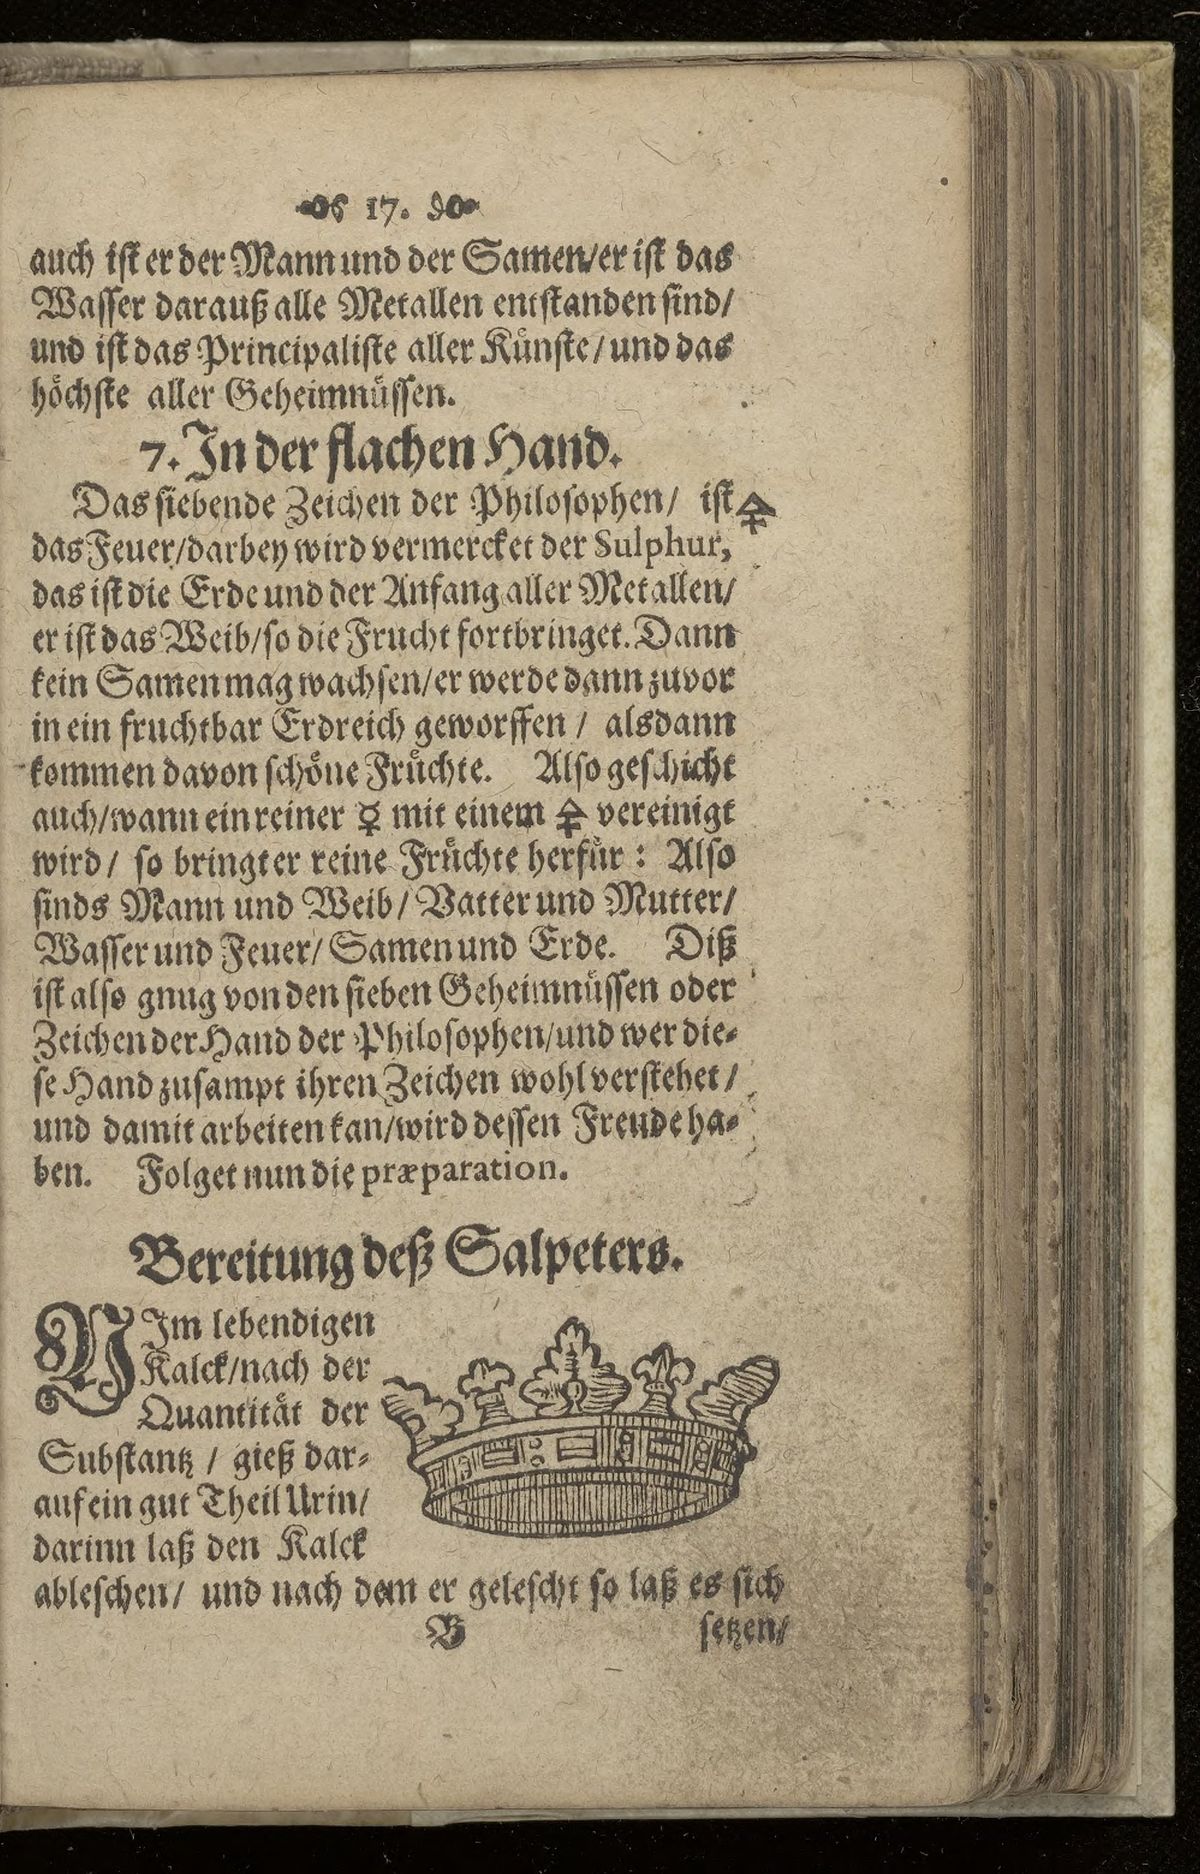 17.
auch ist er der Mann und der Samen/er ist das
Wasser darauß alle Metallen entstanden sind/
und ist das Principaliste aller Künste/ und das
höchste aller Geheimnüssen.
7. In der flachen Hand.
Das siebende Zeichen der Philosophen/ ist 🜍
das Feuer/darbey wird vermercket der Sulphur,
das ist die Erde und der Anfang aller Metallen/
er ist das Weib/so die Frucht fortbringet. Dann
kein Samen mag wachsen/er werde dann zuvor
in ein fruchtbar Erdreich geworffen / alsdann
kommen davon schöne Früchte. Also geschicht
auch/wann ein reiner ☿ mit einem 🜍 vereinigt
wird/ so bringt er reine Früchte herfür : Also
sinds Mann und Weib/ Vatter und Mutter/
Wasser und Feuer/ Samen und Erde. Diß
ist also gnug von den sieben Geheimnüssen oder
Zeichen der Hand der Philosophen/und wer die-
se Hand zusampt ihren Zeichen wohl verstehet/
und damit arbeiten kan/wird dessen Freude ha-
ben. Folget nun die præparation.
Bereitung deß Salpeters.
NIm lebendigen
Kalck/nach der
Quantität der
Substantz / gieß dar-
auf ein gut Theil Urin/
darinn laß den Kalck
ableschen/ und nach dem er gelescht so laß es sich
B setzen/